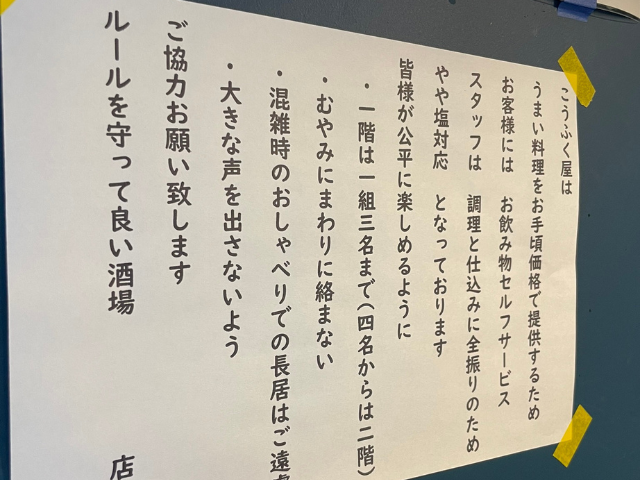 こうふく屋は
うまい料理をお手頃価格で提供するため
お客様には　お飲み物セルフサービス
スタッフは　調理と仕込みに全振りのため
やや塩対応　となっております
皆様が公平に楽しめるように
・一階は一組三名まで(四名からは二階)
・むやみにまわりに絡まない
・混雑時のおしゃべりでの長居はご遠
・大きな声を出さないよう
ご協力お願い致します
ルールを守って良い酒場
店